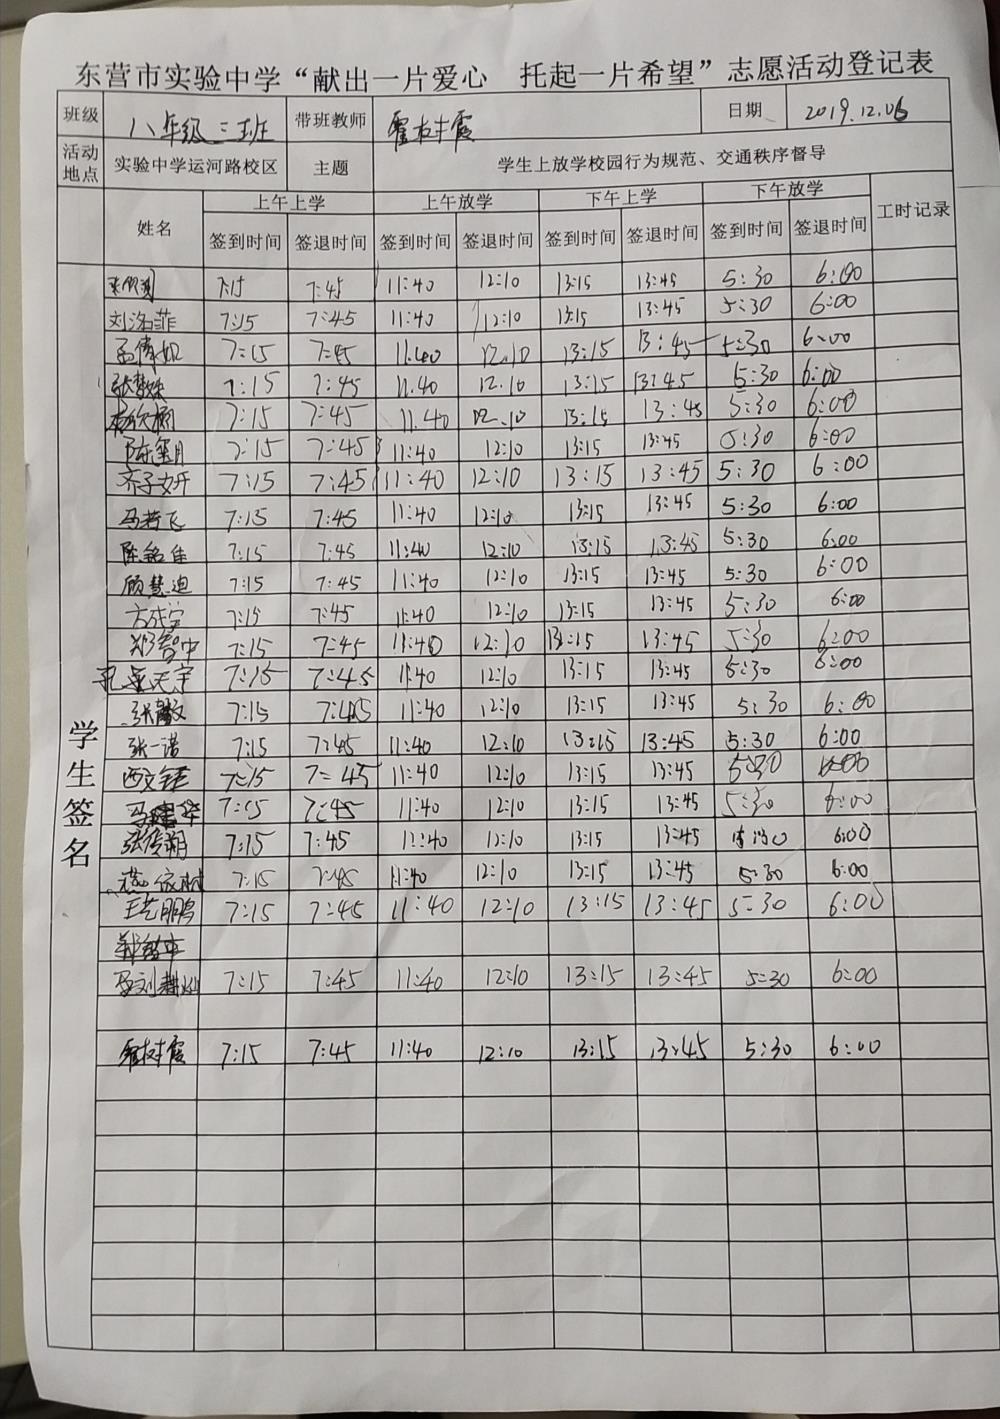 东营市实验中学“献出一片爱心 托起一片希望”志愿活动登记表
班级 八年级三班 带班教师 霍树霞 日期 2019.12.06
活动地点 实验中学运河路校区 主题 学生上放学校园行为规范、交通秩序督导
姓名 上午上学 上午放学 下午上学 下午放学 工时记录
签到时间 签退时间 签到时间 签退时间 签到时间 签退时间 签到时间 签退时间
学生签名
7:15 7:45 11:40 12:10 13:15 13:45 5:30 6:00
刘洺菲 7:15 7:45 11:40 12:10 13:15 13:45 5:30 6:00
7:15 7:45 11:40 12.10 13:15 13:45 5:30 6:00
7:15 7:45 11.40 12.10 13:15 13:45 5:30 6:00
7:15 7:45 11.40 12.10 13:15 13:45 5:30 6:00
7:15 7:45 11:40 12:10 13:15 13:45 5:30 6:00
齐子妍 7:15 7:45 11:40 12:10 13:15 13:45 5:30 6:00
马若飞 7:15 7:45 11:40 12:10 13:15 13:45 5:30 6:00
陈铭佳 7:15 7:45 11:40 12:10 13:15 13:45 5:30 6:00
顾慧迪 7:15 7:45 11:40 12:10 13:15 13:45 5:30 6:00
7:15 7:45 11:40 12:10 13:15 13:45 5:30 6:00
郑智中 7:15 7:45 11:40 12:10 13:15 13:45 5:30 6:00
孔孟天宇 7:15 7:45 11:40 12:10 13:15 13:45 5:30 6:00
7:15 7:45 11:40 12:10 13:15 13:45 5:30 6:00
张一诺 7:15 7:45 11:40 12:10 13:15 13:45 5:30 6:00
7:15 7:45 11:40 12:10 13:15 13:45 5:30 6:00
7:15 7:45 11:40 12:10 13:15 13:45 5:30 6:00
7:15 7:45 11:40 12:10 13:15 13:45 6:00
7:15 7:45 11:40 12:10 13:15 13:45 5:30 6:00
王艺鹏 7:15 7:45 11:40 12:10 13:15 13:45 5:30 6:00
7:15 7:45 11:40 12:10 13:15 13:45 5:30 6:00
霍树霞 7:15 7:45 11:40 12:10 13:15 13:45 5:30 6:00